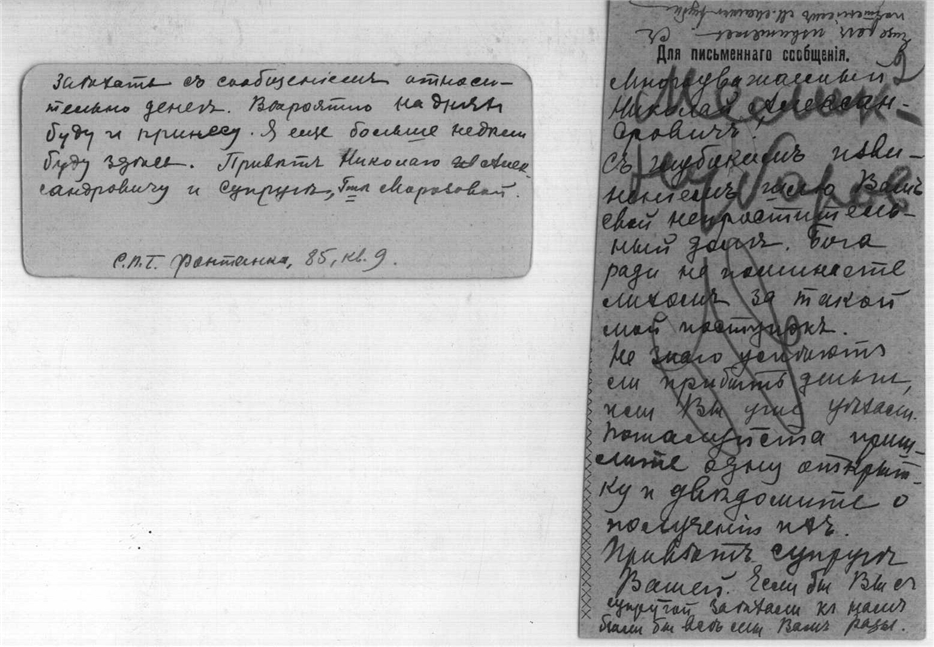 заѣхать съ сообщеніемъ относи-
тельно денегъ. Вѣроятно на дняхъ
буду и принесу. Я еще больше недѣли
буду здѣсь. Привѣтъ Николаю Алек-
сандровичу и Супругѣ, Гжѣ Марозовой.
С.П.Т. Фонтанка, 85, кв. 9.
Еще разъ извиняюсь
Для письменнаго сообщенія.
2
Многоуважаемый
Николай Алессан-
дровичъ!
Мелик-
Нубаров
Съ глубокимъ изви-
неніемъ шлю Вамъ
свой непроститель-
ный долгъ. Бога
ради не поминаете
лихомъ за такой
мой поступокъ.
Не знаю успѣютъ
ли прибыть деньги,
или Вы уже уѣхали.
Пожалуйста приш-
лите одну открыт-
ку и увѣдомите о
полученіи ихъ.
Привѣтъ супругѣ
Вашей. Если бы Вы съ
супругой заѣхали къ намъ
были бы всѣ мы Вамъ рады.